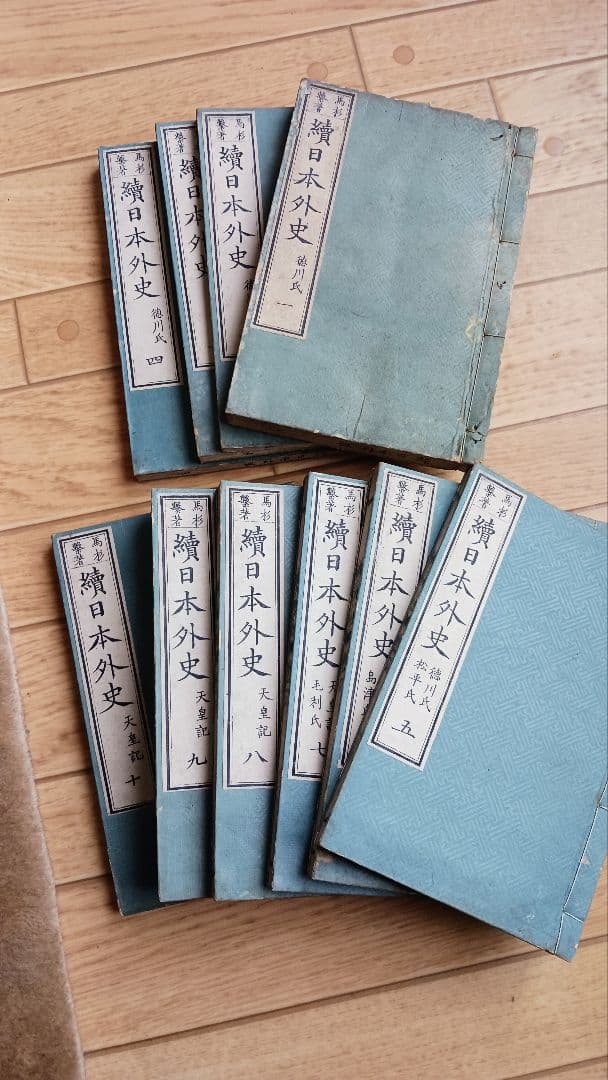 馬杉
繫著
續日本外史
德川氏
一
馬杉
繫著
續日本外史
馬杉
繫著
續日本外史
馬杉
繫著
續日本外史
德川氏
四
馬杉
繫著
續日本外史
德川氏
松平氏
五
馬杉
繫著
續日本外史
島津
馬杉
繫著
續日本外史
毛利氏
七
馬杉
繫著
續日本外史
天皇記
八
馬杉
繫著
續日本外史
天皇記
九
馬杉
繫著
續日本外史
天皇記
十